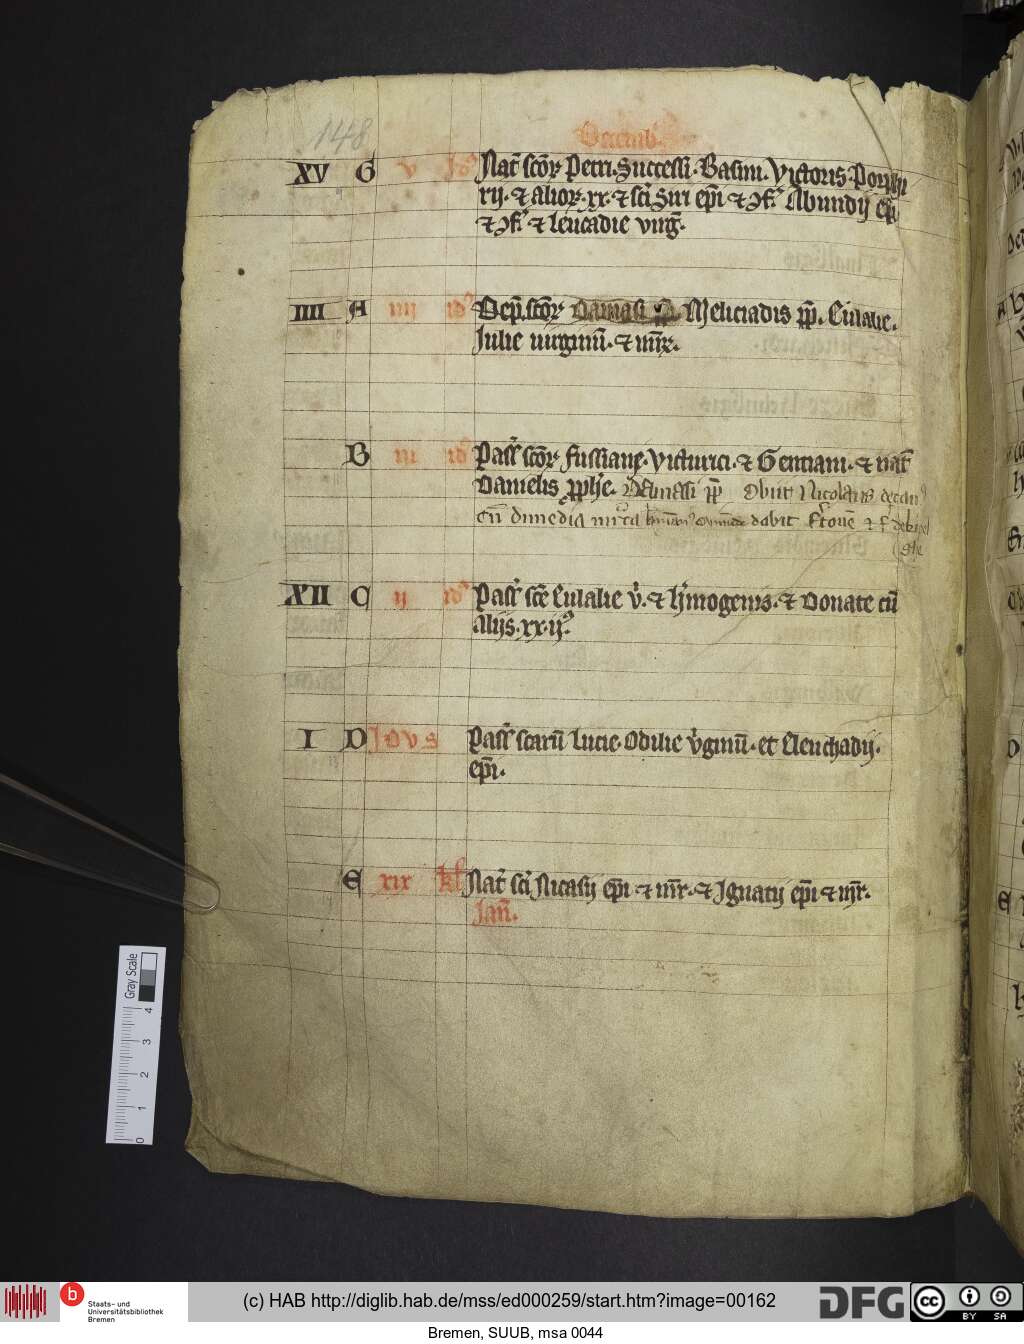 148
Decemb.
XV G v Id9 Nat̄ sc̄oꝝ Petri. Successi. Basini. Victoris. Porphi
rij. ⁊ alioꝝ. xx. ⁊ sc̄i Siri ep̄i ⁊ ꝯf. Abundij ep̄i
⁊ ꝯf. ⁊ leucadie virḡ.
IIII A iiii id9 Dep̄. sc̄oꝝ Damasi pp̄. Melciadis pp̄. Eulalie.
Julie uirginū. ⁊ mr̄ꝝ.
B iii id9 Pass̄ sc̄oꝝ fussiani. Victurici. ⁊ Gentiani. ⁊ nat̄
Danielis ꝓph̄e. Damasi pp̄ Obiit Nicolaus decan9
cū dimedia dabit
XII C ij id9 Pass̄ sc̄e Eulalie v̄. ⁊ h̄mogenis. ⁊ Donate cū
Alijs. xx. ij.
I D IDVS Pass̄ sc̄arū Lucie. Odilie v̄ginū. et Eleuchadij.
ep̄i.
E xix kl̄ Nat̄ sc̄i Nicasij ep̄i ⁊ mr̄. ⁊ Ignatij ep̄i ⁊ mr̄.
Jan̄.
Gray Scale
4
3
2
1
0
b
Staats- und
Universitätsbibliothek
Bremen
(c) HAB http://diglib.hab.de/mss/ed000259/start.htm?image=00162
DFG
cc BY SA
Bremen, SUUB, msa 0044